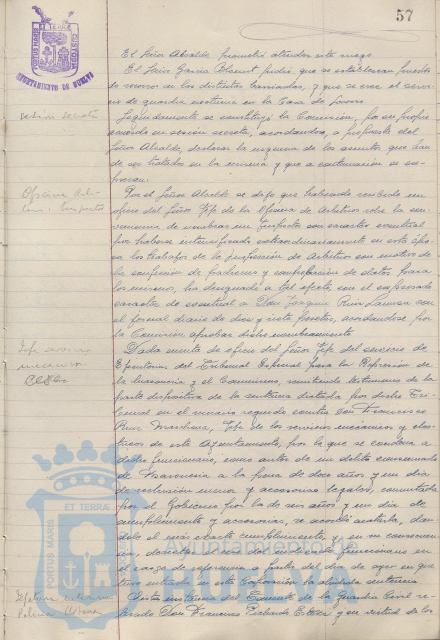 57
PORTUS MARIS ET TERRÆ CUSTODIA
AYUNTAMIENTO DE HUELVA
El Señor Alcalde prometió atender este ruego.
El Señor García pidió que se establecieran puestos
de socorro en las distintas barriadas, y que se cree el servi-
cio de guardia nocturna en la Casa de Socorro.
Sesión secreta
Seguidamente se constituyó la Comisión, por su propio
acuerdo en sesión secreta, acordándose, a propuesta del
Señor Alcalde, declarar la urgencia de los asuntos que han
de ser tratados en la misma y que a continuación se ex-
presan:
Oficina Arbi-
Por el Señor Alcalde se dijo que habiendo recibido un
oficio del Señor Jefe de la Oficina de Arbitrios sobre la con-
veniencia de nombrar un con carácter eventual
por haberse intensificado extraordinariamente en esta épo-
ca los trabajos de la de Arbitrios con motivo de
la confección de padrones y comprobación de datos para
los mismos, ha designado a tal efecto con el expresado
carácter de eventual a Don Joaquín Ruiz con
el jornal diario de diez y siete pesetas, acordándose por
la Comisión aprobar dicho nombramiento.
Jefe servicio
mecánico
Dada cuenta de oficio del Señor Jefe del servicio de
Ejecutorias del Tribunal Especial para la Represión de
la Masonería y el Comunismo, remitiendo testimonio de la
parte dispositiva de la sentencia dictada por dicho Tri-
bunal en el sumario seguido contra Don Francisco
Ruiz Marchena, Jefe de los servicios mecánicos y eléc-
tricos de este Ayuntamiento, por la que se condena a
dicho funcionario, como autor de un delito consumado
de Masonería a la pena de doce años y un día
de reclusión menor y accesorias legales, conmutada
por el Gobierno por la de seis años y un día de
y accesorias, se acordó acatarla, dan-
dole el más exacto cumplimiento, y en su consecuen-
cia, declarar al dicho funcionario en
el cargo de referencia a partir del día de ayer en que
tuvo entrada en esta Corporación la aludida sentencia.
Vista instancia del de la Guardia Civil re-
tirado Don Francisco y en virtud de las
PORTUS MARIS ET TERRÆ
Ayuntamiento de